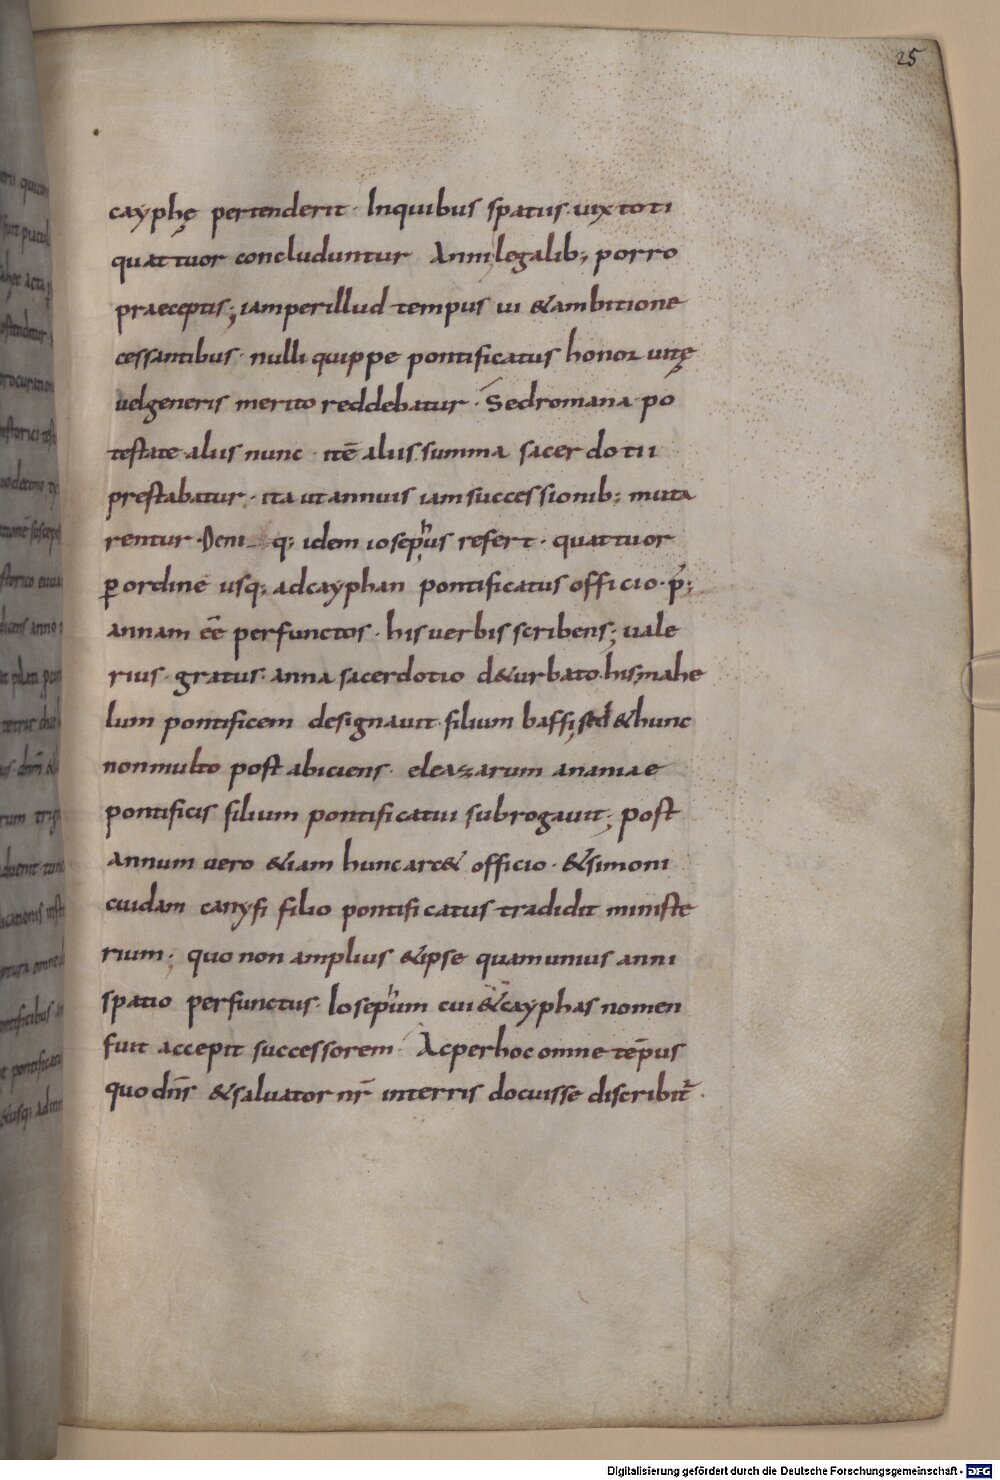 25
cayphę pertenderit · Inquibus spatiis uix toti
quattuor concluduntur Anni legalib; porro
praeceptis; iamperillud tempus ui &ambitione
cessantibus · nulli quippe pontificatus honor uitę
uelgeneris merito reddebatur · Sedromana po
testate aliis nunc · itē aliis summa sacerdotii
prestabatur · ita ut annuis iam successionib; muta
rentur · Deni_q; idem iosephus refert · quattuor
p ordinē usq; adcayphan pontificatus officio · p̄;
annam eē perfunctos · his uerbis scribens; uale
rius · gratus · anna sacerdotio d&urbato hismahe
lum pontificem designauit filium baffi, sed &hunc
nonmulto post abiciens · eleazarum ananiae
pontificis filium pontificatui subrogauit; post
annum uero &iam hunc arc& officio · &simoni
cuidam canyfi filio pontificatus tradidit ministe
rium; quo non amplius &ipse quamunius anni
spatio perfunctus · Iosephum cui &cayphas nomen
fuit accepit successorem · Acperhoc omne tēpus
quo dn̄s &saluator nr̄ interris docuisse discribit̄ ·
Digitalisierung gefördert durch die Deutsche Forschungsgemeinschaft - DFG